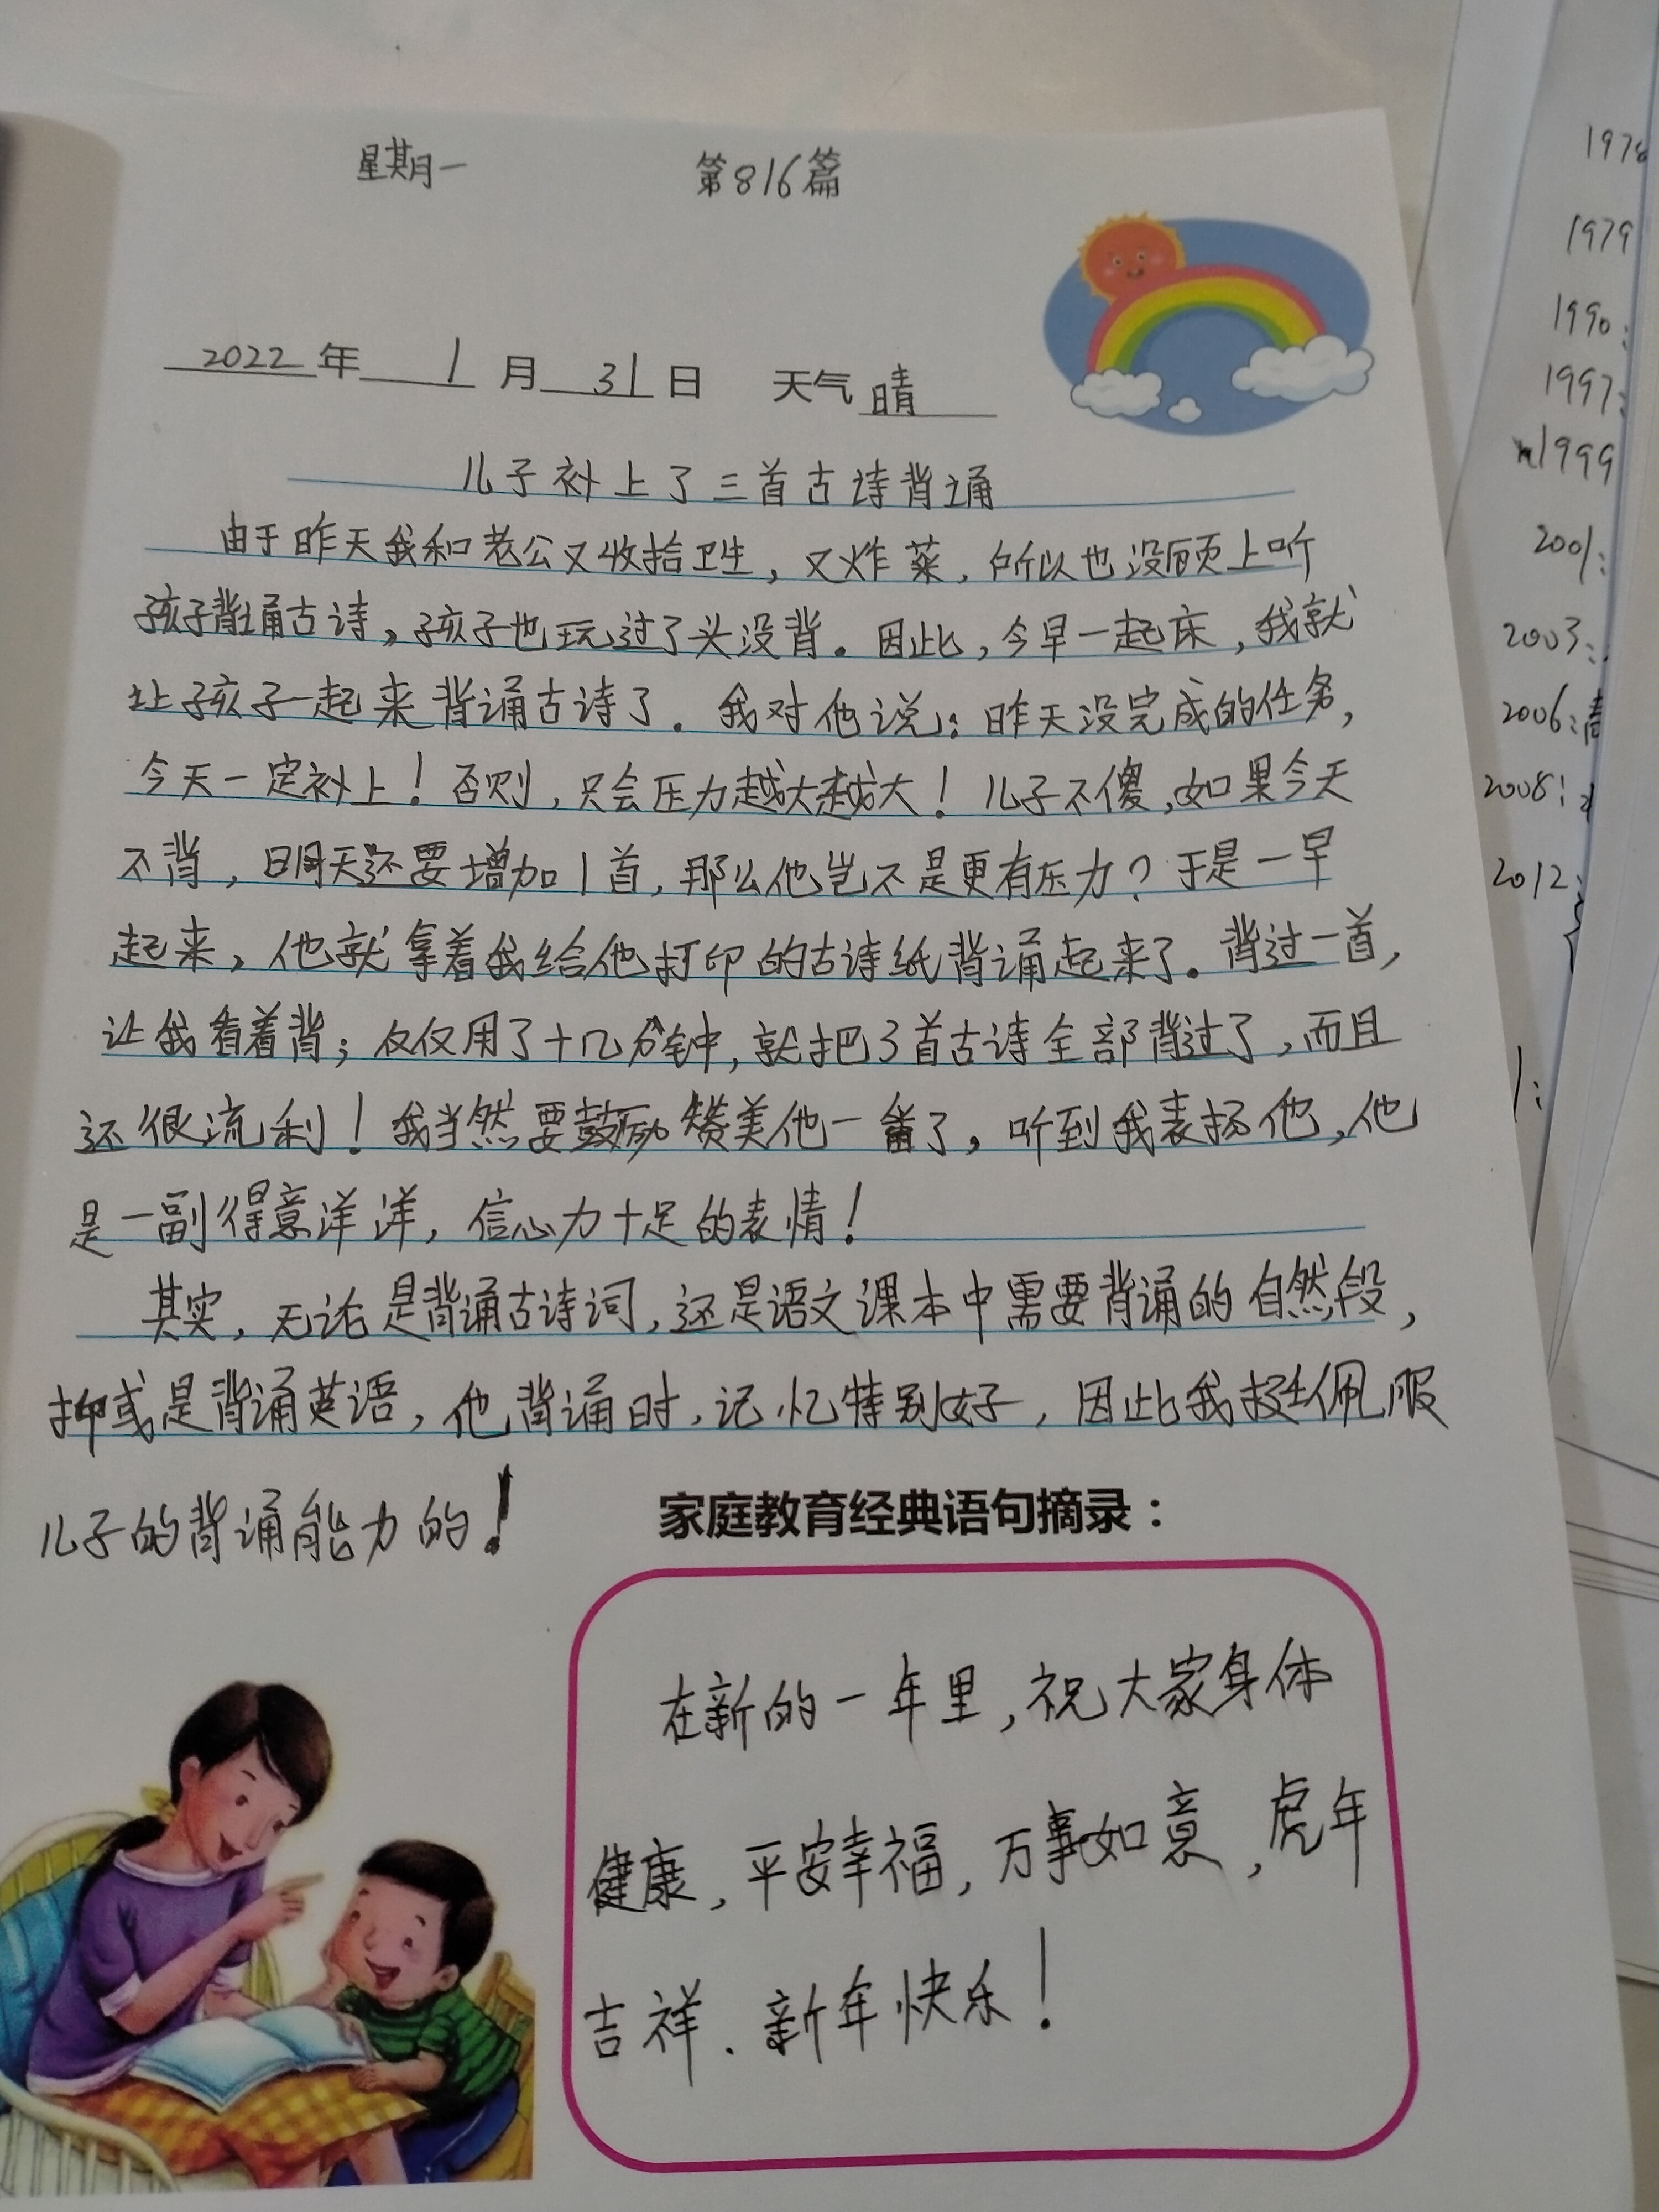 星期一 第816篇
2022年 1月 31日 天气 晴
儿子补上了三首古诗背诵
由于昨天我和老公又收拾卫生，又炸菜，所以也没顾上听
孩子背诵古诗，孩子也玩过了头没背。因此，今早一起床，我就
让孩子一起来背诵古诗了。我对他说：昨天没完成的任务，
今天一定补上！否则，只会压力越大越大！儿子不傻，如果今天
不背，明天还要增加1首，那么他岂不是更有压力？于是一早
起来，他就拿着我给他打印的古诗纸背诵起来了。背过一首，
让我看着背；仅仅用了十几分钟，就把3首古诗全部背过了，而且
还很流利！我当然要鼓励赞美他一番了，听到我表扬他，他
是一副得意洋洋，信心力十足的表情！
其实，无论是背诵古诗词，还是语文课本中需要背诵的自然段，
抑或是背诵英语，他背诵时，记忆特别好，因此我挺佩服
儿子的背诵能力的！
家庭教育经典语句摘录：
在新的一年里，祝大家身体
健康，平安幸福，万事如意，虎年
吉祥．新年快乐！
1978
1979
1990：
1997：
1999
2001：
2003：
2006：
2008：
2012：